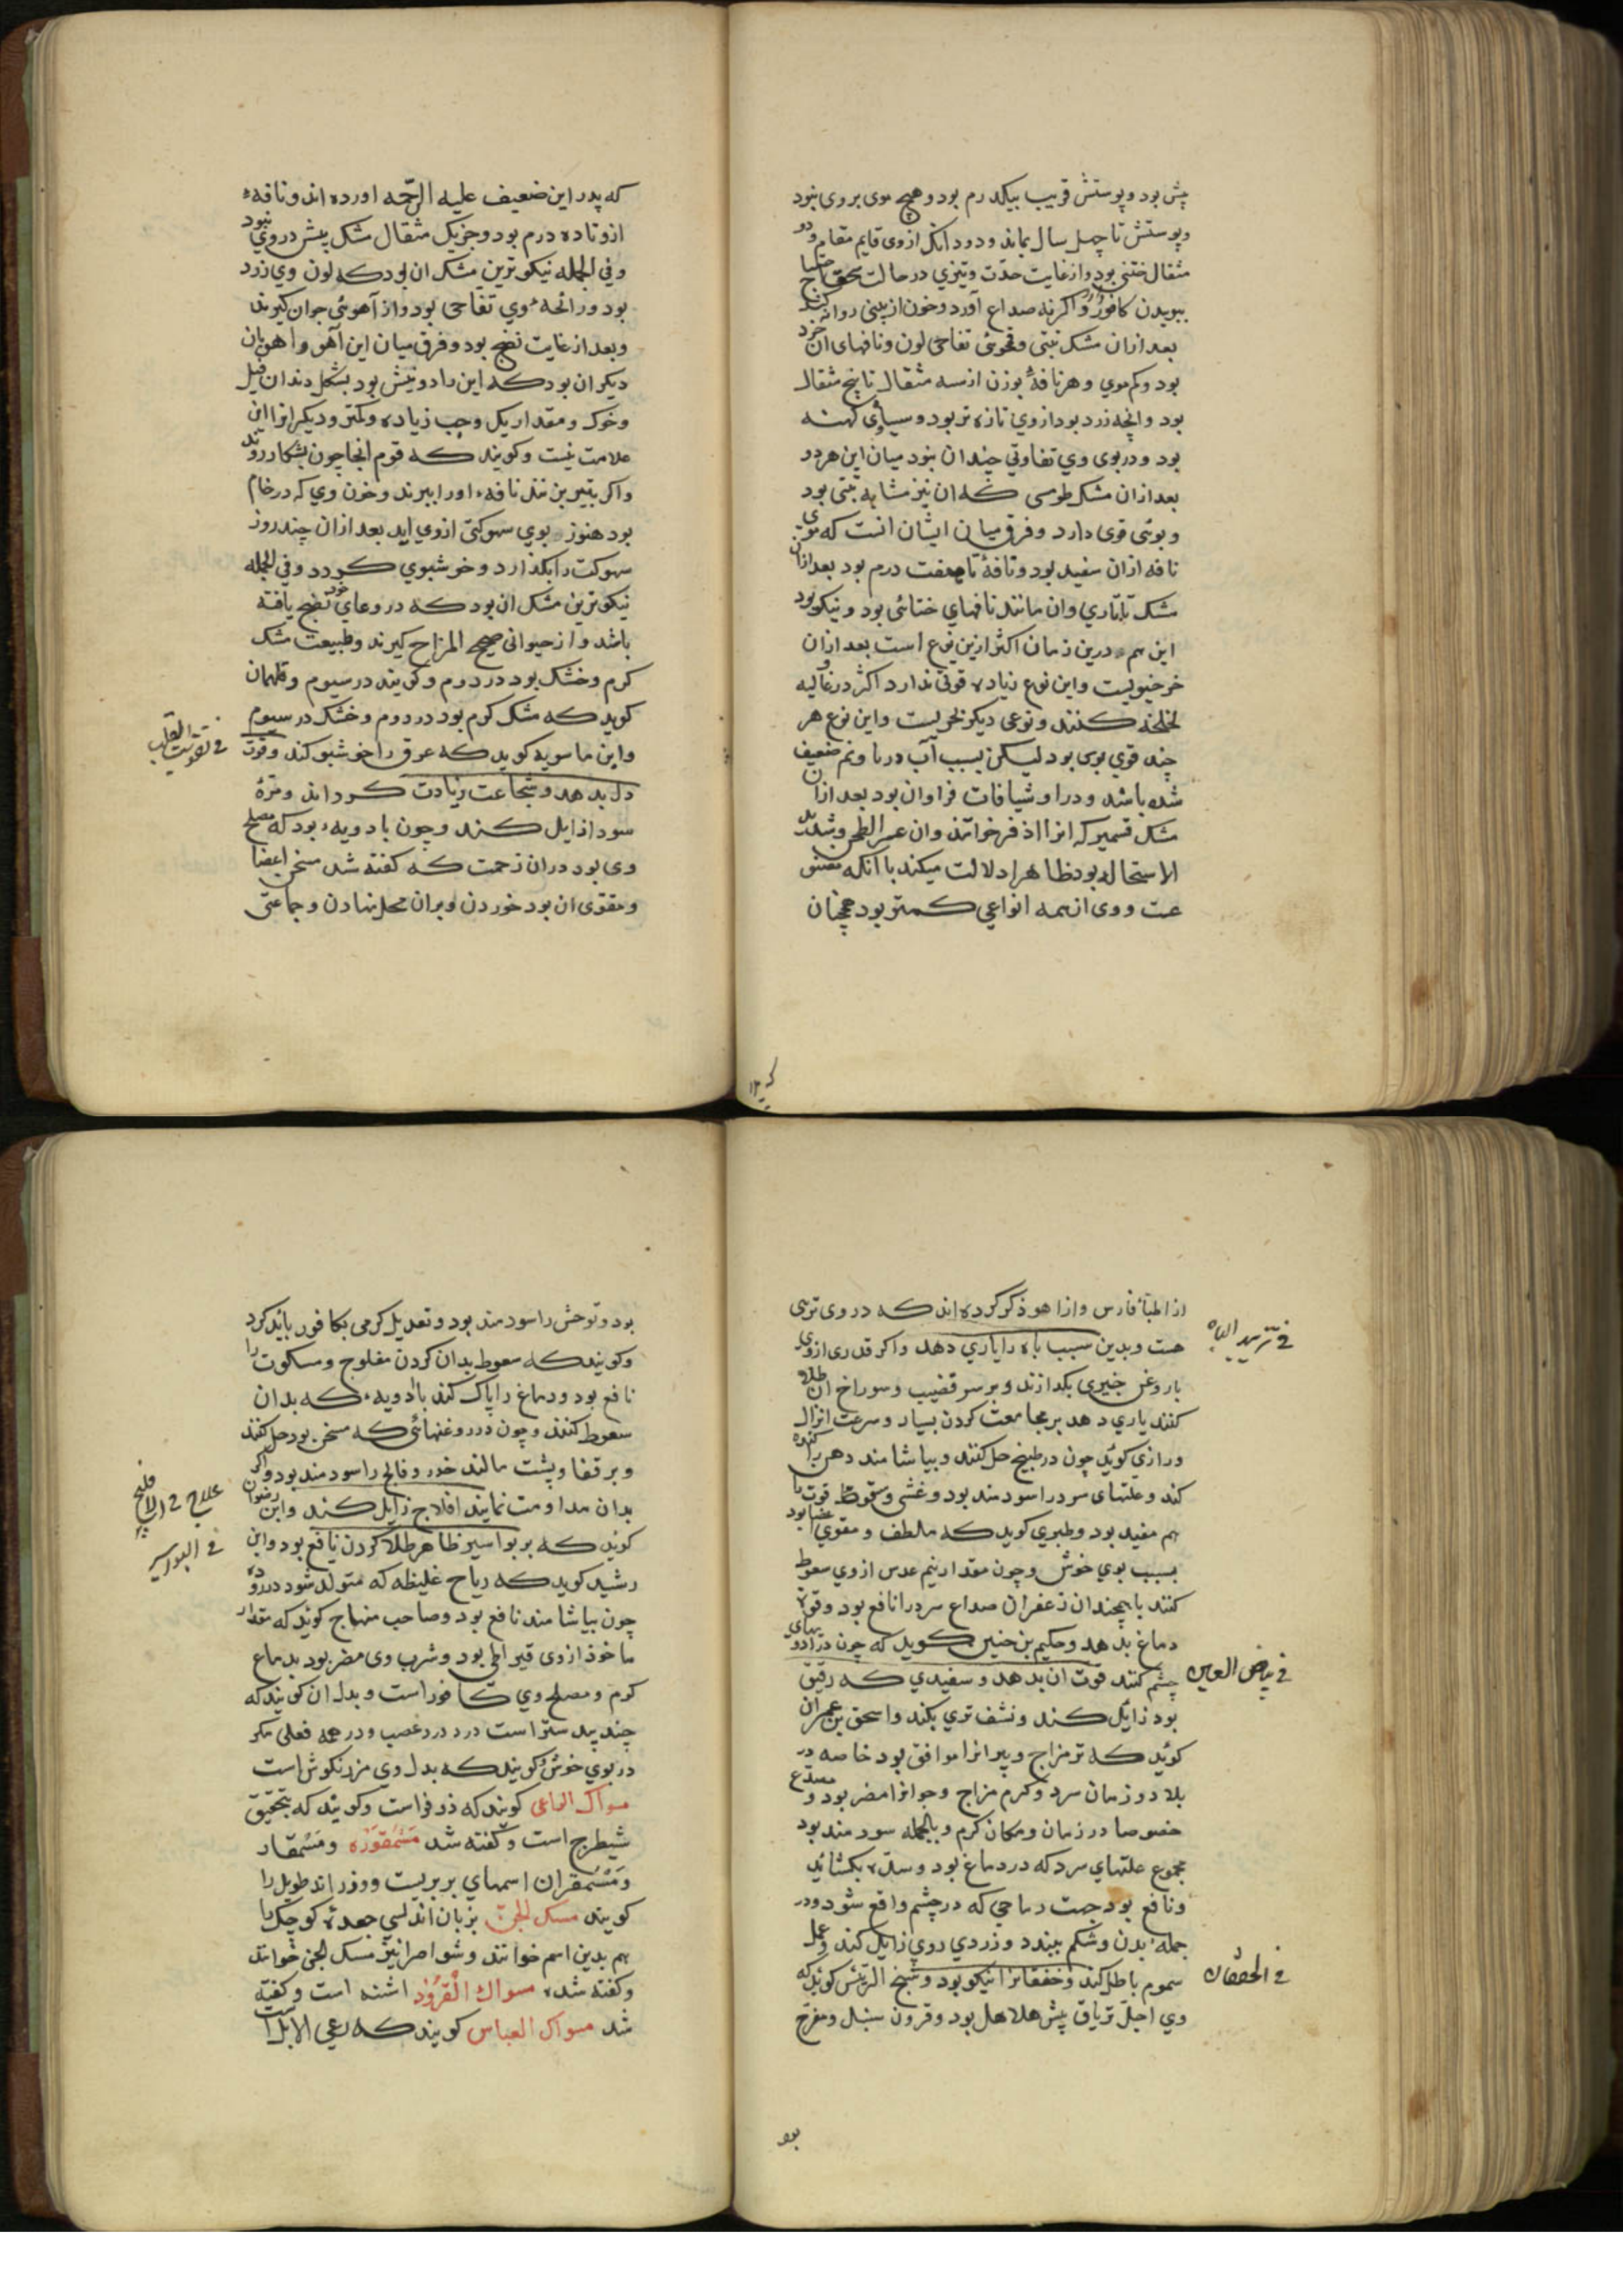 پش بود و پوستش قریب بیکدرم بود و هیچ موی بروی نبود
و پوستش تا چهل سال بماند و دودانک ازوی قایم مقام دو
مثقال ختنی بود و از غایت حدّت و تیزی در حالت سحق احتیاج
ببویدن کافور بود و اکر نه صداع آورد و خون از بینی روانه کند
بعد ازان مشک تبتی و تفاحی لون و نافهای ان خرد
بود و کم موی و هر نافهٔ بوزن از سه مثقال تا پنج مثقال
بود و انچه زرد بود از وی تازه تر بود و سیاه کهنه
بود و در بوی وی تفاوتی چندان نبود میان این هر دو
بعد ازان مشک طوسی که ان نیز مشابه تبتی بود
و بوئی قوی دارد و فرق میان ایشان انست که موی
نافه ازان سفید بود و نافهٔ تا هفت درم بود بعد ازان
مشک تاتاری وان مانند نافهای ختائی بود و نیکو بود
این هم درین زمان اکثر ازین نوع است بعد ازان
خرخیزیست و این نوع زیاده قوتی ندارد اکثر در غالیه و
لخلخه کنند و نوعی دیکر بحریست و این نوع هر
چند قوی بوی بود لیکن بسبب آب دریا و نم ضعیف
شده باشد و در او شیافات فراوان بود بعد ازان
مشک قسمیر که انرا اذفر خوانند وان عسر الطحن و شدید
الاستحاله بود ظاهرا دلالت میکند با انکه مغشوش
است و وی از همه انواعی کمتر بود همچنان
که پدر این ضعیف علیه الرحمه اورده اند و نافهٔ
ازو تا ده درم بود و جز یک مثقال مشک بیش در وی نبود
و فی الجمله نیکوترین مشک ان بود که لون وی زرد
بود و رائحهٔ وی تفاحی بود و از آهوئی جوان کیرند
و بعد از غایت نضج بود و فرق میان این آهو و اهوان
دیکر ان بود که این را دو نیش بود بشکل دندان فیل
و خوک و مقدار یک وجب زیاده و کمتر و دیکر انرا این
علامت نیست و کویند که قوم انجا چون بشکار روند
و اکر بتیر بزنند نافهٔ او را ببرند و خون وی که در خام
بود هنوز بوی سهوکتی ازوی اید بعد ازان چند روز
سهوکت را بکذارد و خوشبوی کردد و فی الجمله
نیکوترین مشک ان بود که در وعای خود نضج یافته
باشد و از حیوانی صحیح المزاج کیرند و طبیعت مشک
کرم و خشک بود در دوم و کویند در سیوم و قلهمان
کوید که مشک کرم بود در دوم و خشک در سیوم
و ابن ماسویه کوید که عرق را خوشبو کند و قوت
دل بدهد و شجاعت زیادت کرداند و مرّهٔ
سودا زایل کند و چون با دویهٔ بود که مصلح
وی بود دران زحمت که کفته شد مسخن اعضا
و مقوی ان بود خوردن و بران محل نهادن و جماعتی
فی تقویت القلب
از اطبّاء فارس و از اهوذ ذکر کرده اند که در وی تریی
هست و بدین سبب باه را یاری دهد و اکر قدری ازوی
با روغن خیری بکدازند و بر سر قضیب و سوراخ ان طلا
کنند یاری دهد بر مجامعت کردن بسیار و سرعت انزال
و رازی کوید چون در طبیخ حل کنند و بیاشامند دهن را کنده
کند و علتهای سرد را سودمند بود و غشی و سقوط قوت را
هم مفید بود و طبری کوید که ملطف و مقوی اعضا بود
بسبب بوی خوش و چون مقدار نیم عدس ازوی سعوط
کنند با همچندان زعفران صداع سرد را نافع بود و قوت
دماغ بدهد و حکیم بن حنین کوید که چون در ادویهای
چشم کنند قوت ان بدهد و سفیدی که رقیق
بود زایل کند و نشف تری بکند و اسحق بن عمران
کوید که تر مزاج و پیرانرا موافق بود خاصه در
بلاد و زمان سرد و کرم مزاج و جوانرا مضر بود و مصدّع
خصوصا در زمان و مکان کرم و بالجمله سودمند بود
مجموع علتهای سرد که در دماغ بود و سدّه بکشاید
و نافع بود جهت ریاحی که در چشم واقع شود و در
جمله بدن و شکم ببندد و زردی روی زایل کند و عمل
سموم باطل کند و خفقانرا نیکو بود و شیخ الرئیس کوید که
وی اجلّ تریاق بیش هلاهل بود و قرون سنبل و مفرح
فی تزیید الباه
فی بیاض العین
فی الخفقان
بود
بود و توحش را سودمند بود و تعدیل کرمی بکافور باید کرد
و کویند که سعوط بدان کردن مفلوج و مسکوت را
نافع بود و دماغ را پاک کند با ادویهٔ که بدان
سعوط کنند و چون در روغنهائی که مسخن بود حل کنند
و بر قفا و پشت مالند خدر و فالج را سودمند بود و اکر
بدان مداومت نمایند افلاج زایل کند و ابن رضوان
کوید که بر بواسیر ظاهر طلا کردن نافع بود و ابن
رشید کوید که ریاح غلیظه که متولد شود در روده
چون بیاشامند نافع بود و صاحب منهاج کوید که مقدار
ماخوذ ازوی قیراطی بود و شرب وی مضر بود بدماغ
کرم و مصلح وی کافور است و بدل ان کویند که
جند بیدستر است در درد عصب و در همه فعلی مکر
در بوی خوش و کویند که بدل وی مرزنکوش است
مسواک الراعی کویند که ذوفراست و کویند که بتحقیق
شیطرج است و کفته شد مَشمقورَه و مَشمقار
و مَشمقران اسمهای بربریست و وفراند طویل را
کویند مسک الجن بزبان اندلسی جعدهٔ کوچک را
هم بدین اسم خوانند و شواصرا نیز مسک الجن خوانند
و کفته شد مسواک القرود اشنه است و کفته
شد مسواک العباس کویند که رعی الابل است
علاج فی الافلاج
فی البواسیر